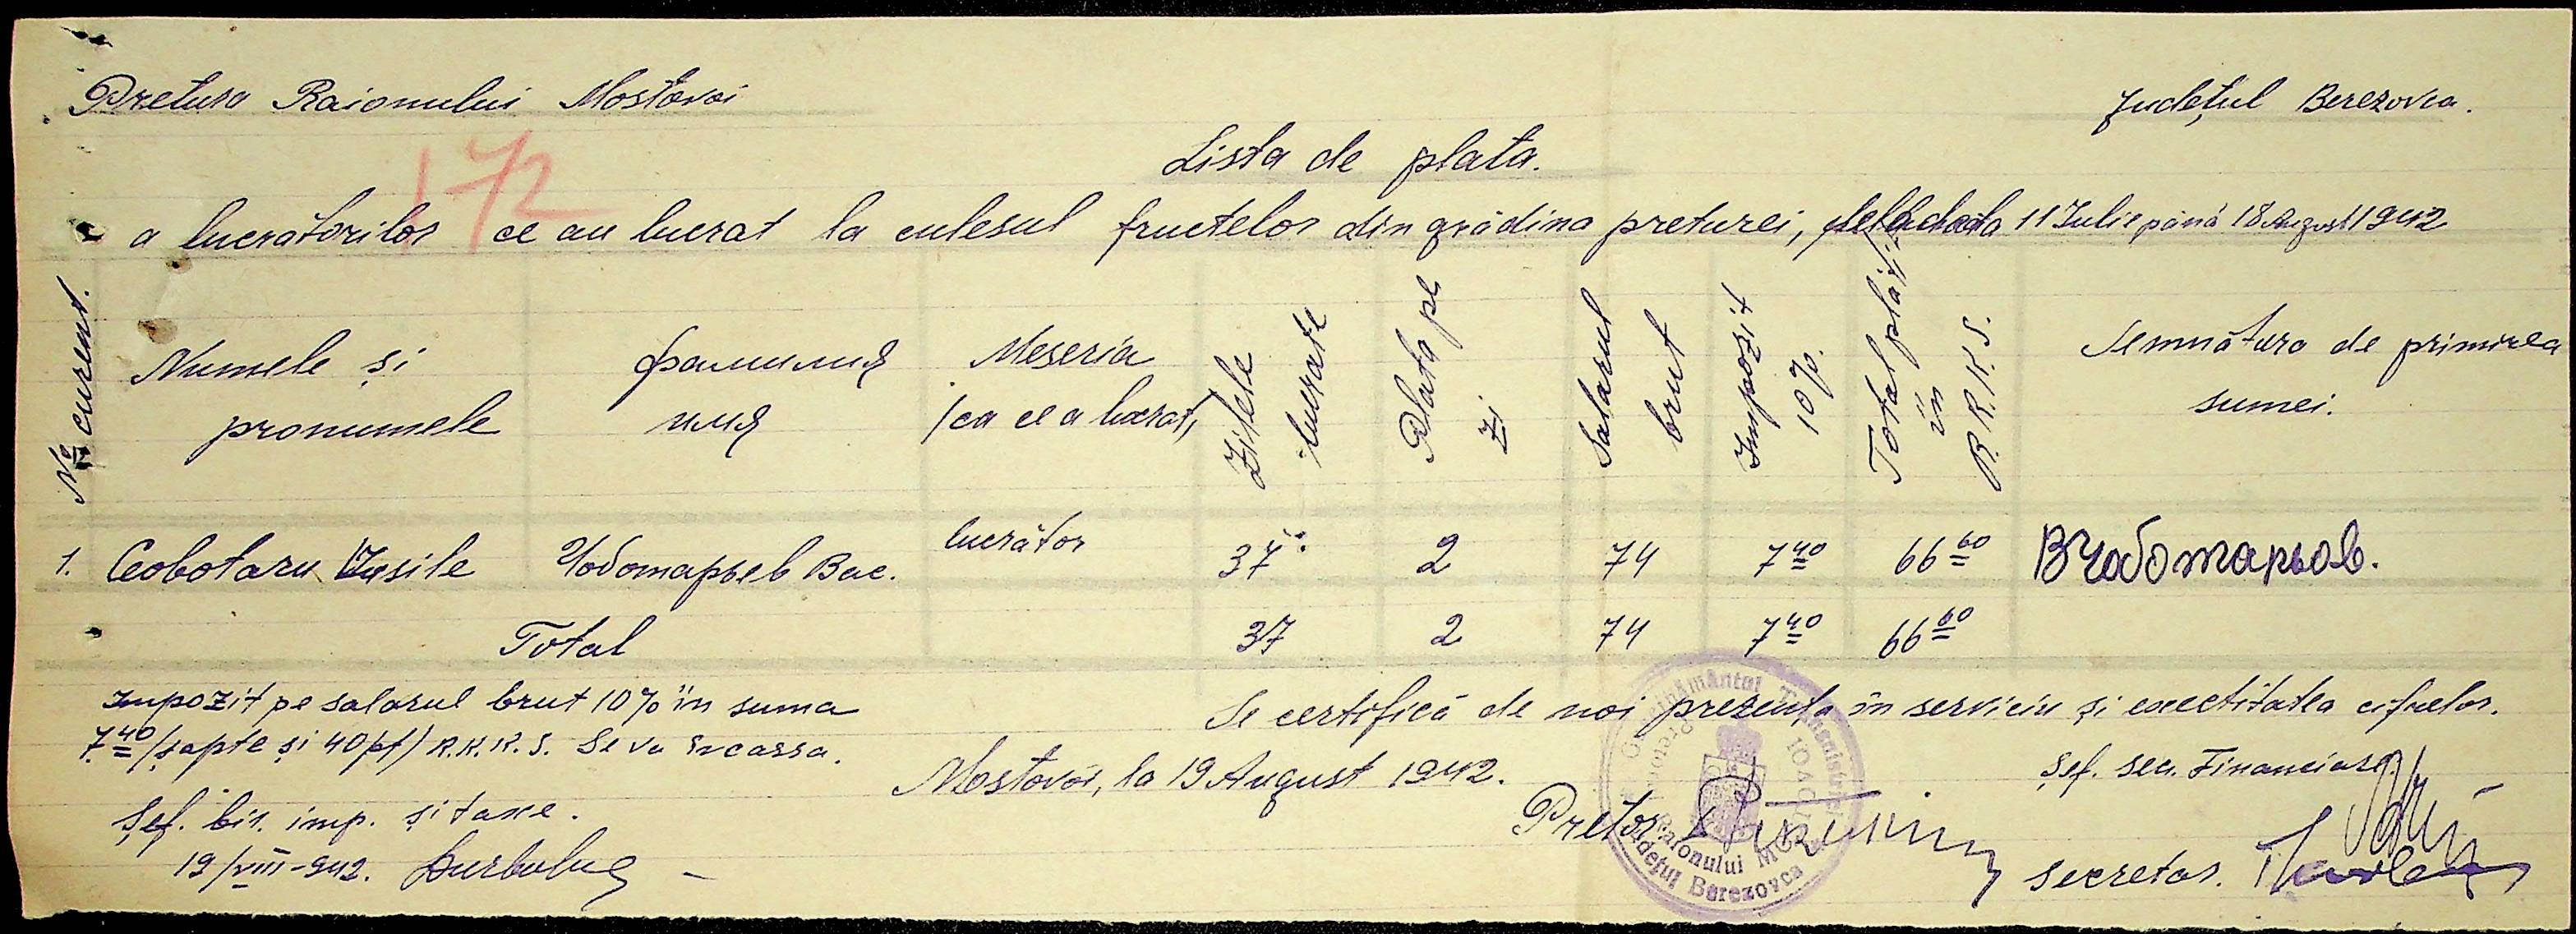 Pretura Raionului Mostovoi
Județul Berezovca.
172
Lista de plata.
a lucrătorilor ce au lucrat la culesul fructelor din grădina preturei, dela data 11 Iulie până 18 August 1942
№ curent.
Numele și pronumele
фамилия имя
Meseria /ca ce a lucrat/
Zilele lucrate
Plata pe zi
Salarul brut
Impozit 10%.
Total plătit în R.K.K.S.
Semnătura de primirea sumei.
1. Ceobotaru Vasile Чоботарьев Вас. lucrător 37 2 74 7 40 66 60 ВЧоботарьов.
Total 37 2 74 7 40 66 60
Impozit pe salarul brut 10% în suma
7 40 /șapte și 40 pf/ R.K.K.S. Se va încassa.
Șef. bir. imp. și taxe.
19/VIII-942.
Se certifică de noi prezența în serviciu și exactitatea cifrelor.
Mostovoi, la 19 August 1942.
Șef. sec. Financiare.
Pretor
secretar.
Guvernământul Transnistriei
Raionului
Județul Berezovca